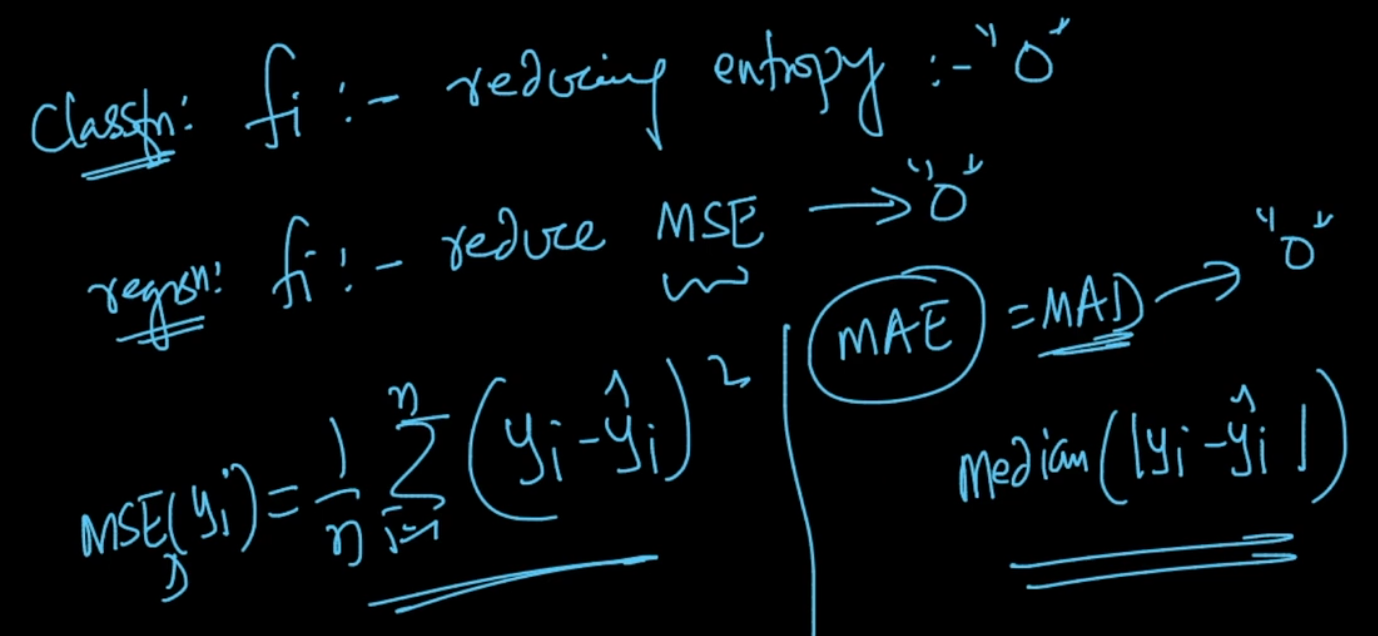 Classfn: fi :- reducing entropy :- "0"
regrsn: fi :- reduce MSE → "0"
MAE = MAD → "0"
MSE(yi) = 1/n Σ i=1 n (yi - ŷi)²
D
Median(|yi - ŷi|)